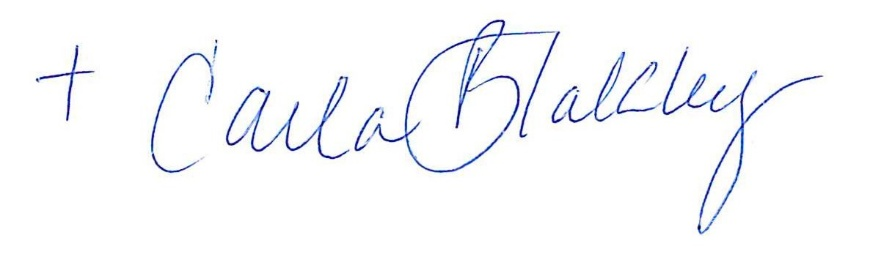 + Carla Blakley